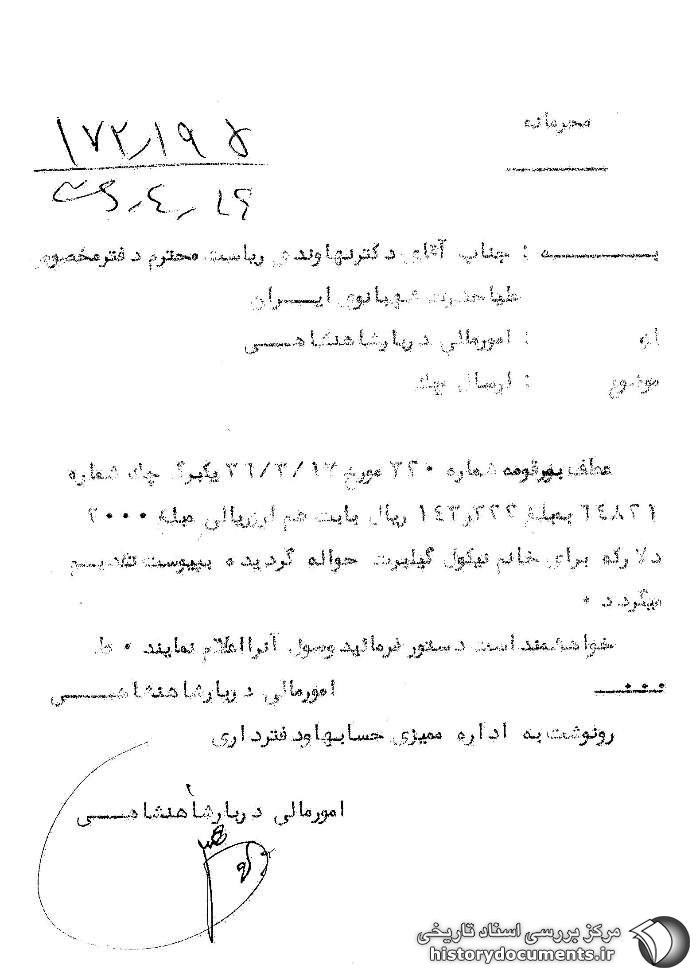 محرمانه
۱۷۲٫۱۹۵
۳۶٫۴٫۱۶
بـــــه : جناب آقای دکترنهاوندی ریاست محترم دفترمخصوص
علیاحضرت شهبانوی ایــران
از : امورمالی دربارشاهنشاهــی
موضوع : ارسال چک
عطف بمرقومه شماره ۳۲۰ مورخ ۳۶/۳/۱۷ یکبرگ چک شماره
۶۴۸۲۱ بمبلغ ۱۴۳٫۲۲۲ ریال بابت هم ارزریالی مبلغ ۲۰۰۰
دلارکه برای خانم نیکول گیلبرت حواله گردیده بپیوست تقدیـم
میگردد ۰
خواهشمنداست دستور فرمائید وصول آنرااعلام نمایند ۰ ط
امورمالی دربارشاهنشاهــی
رونوشت به اداره ممیزی حسابهاودفترداری
امورمالی دربارشاهنشاهــی
مرکز بررسی اسناد تاریخی
historydocuments.ir